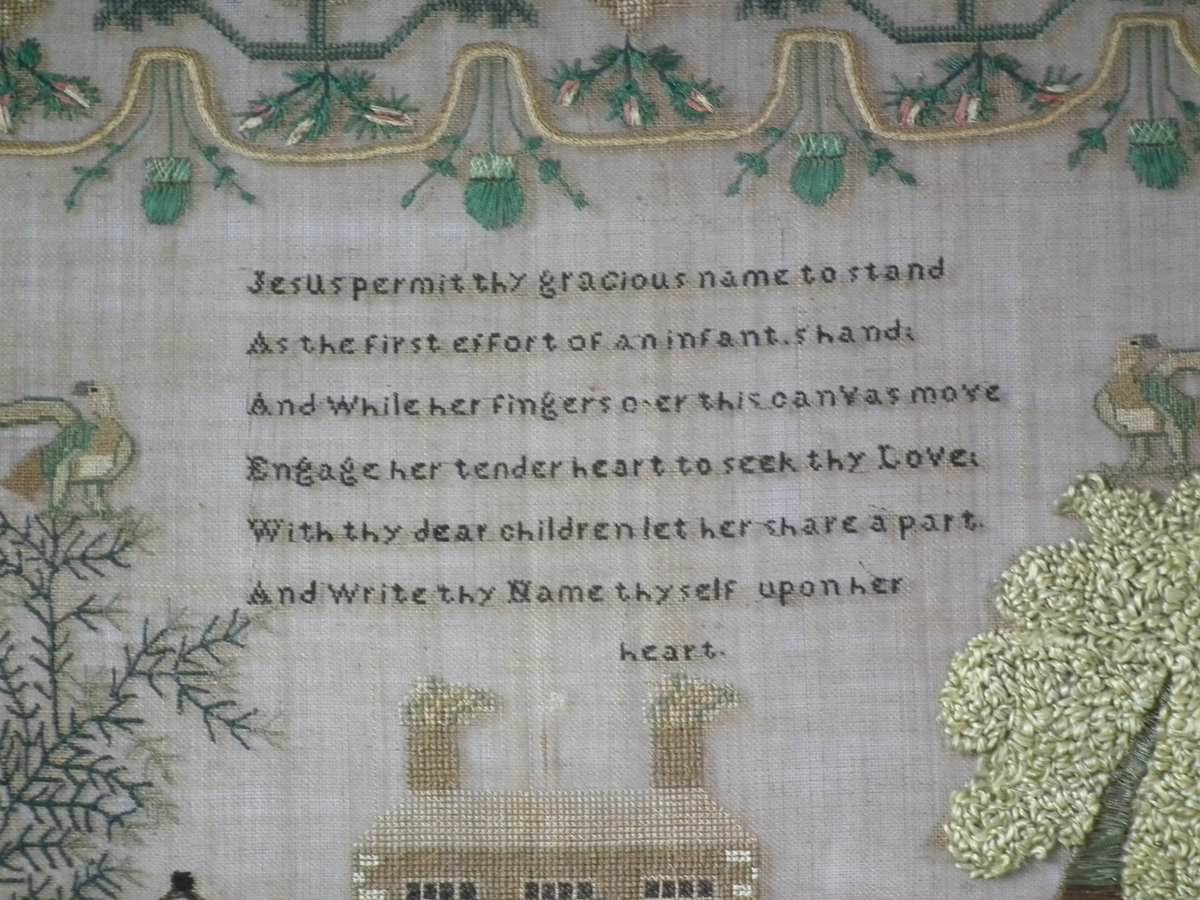 Jesus permit thy gracious name to stand
As the first effort of an infant.s hand:
And While her fingers o-er this canvas move
Engage her tender heart to seek thy Love:
With thy dear children let her share a part.
And Write thy Name thyself upon her
heart.